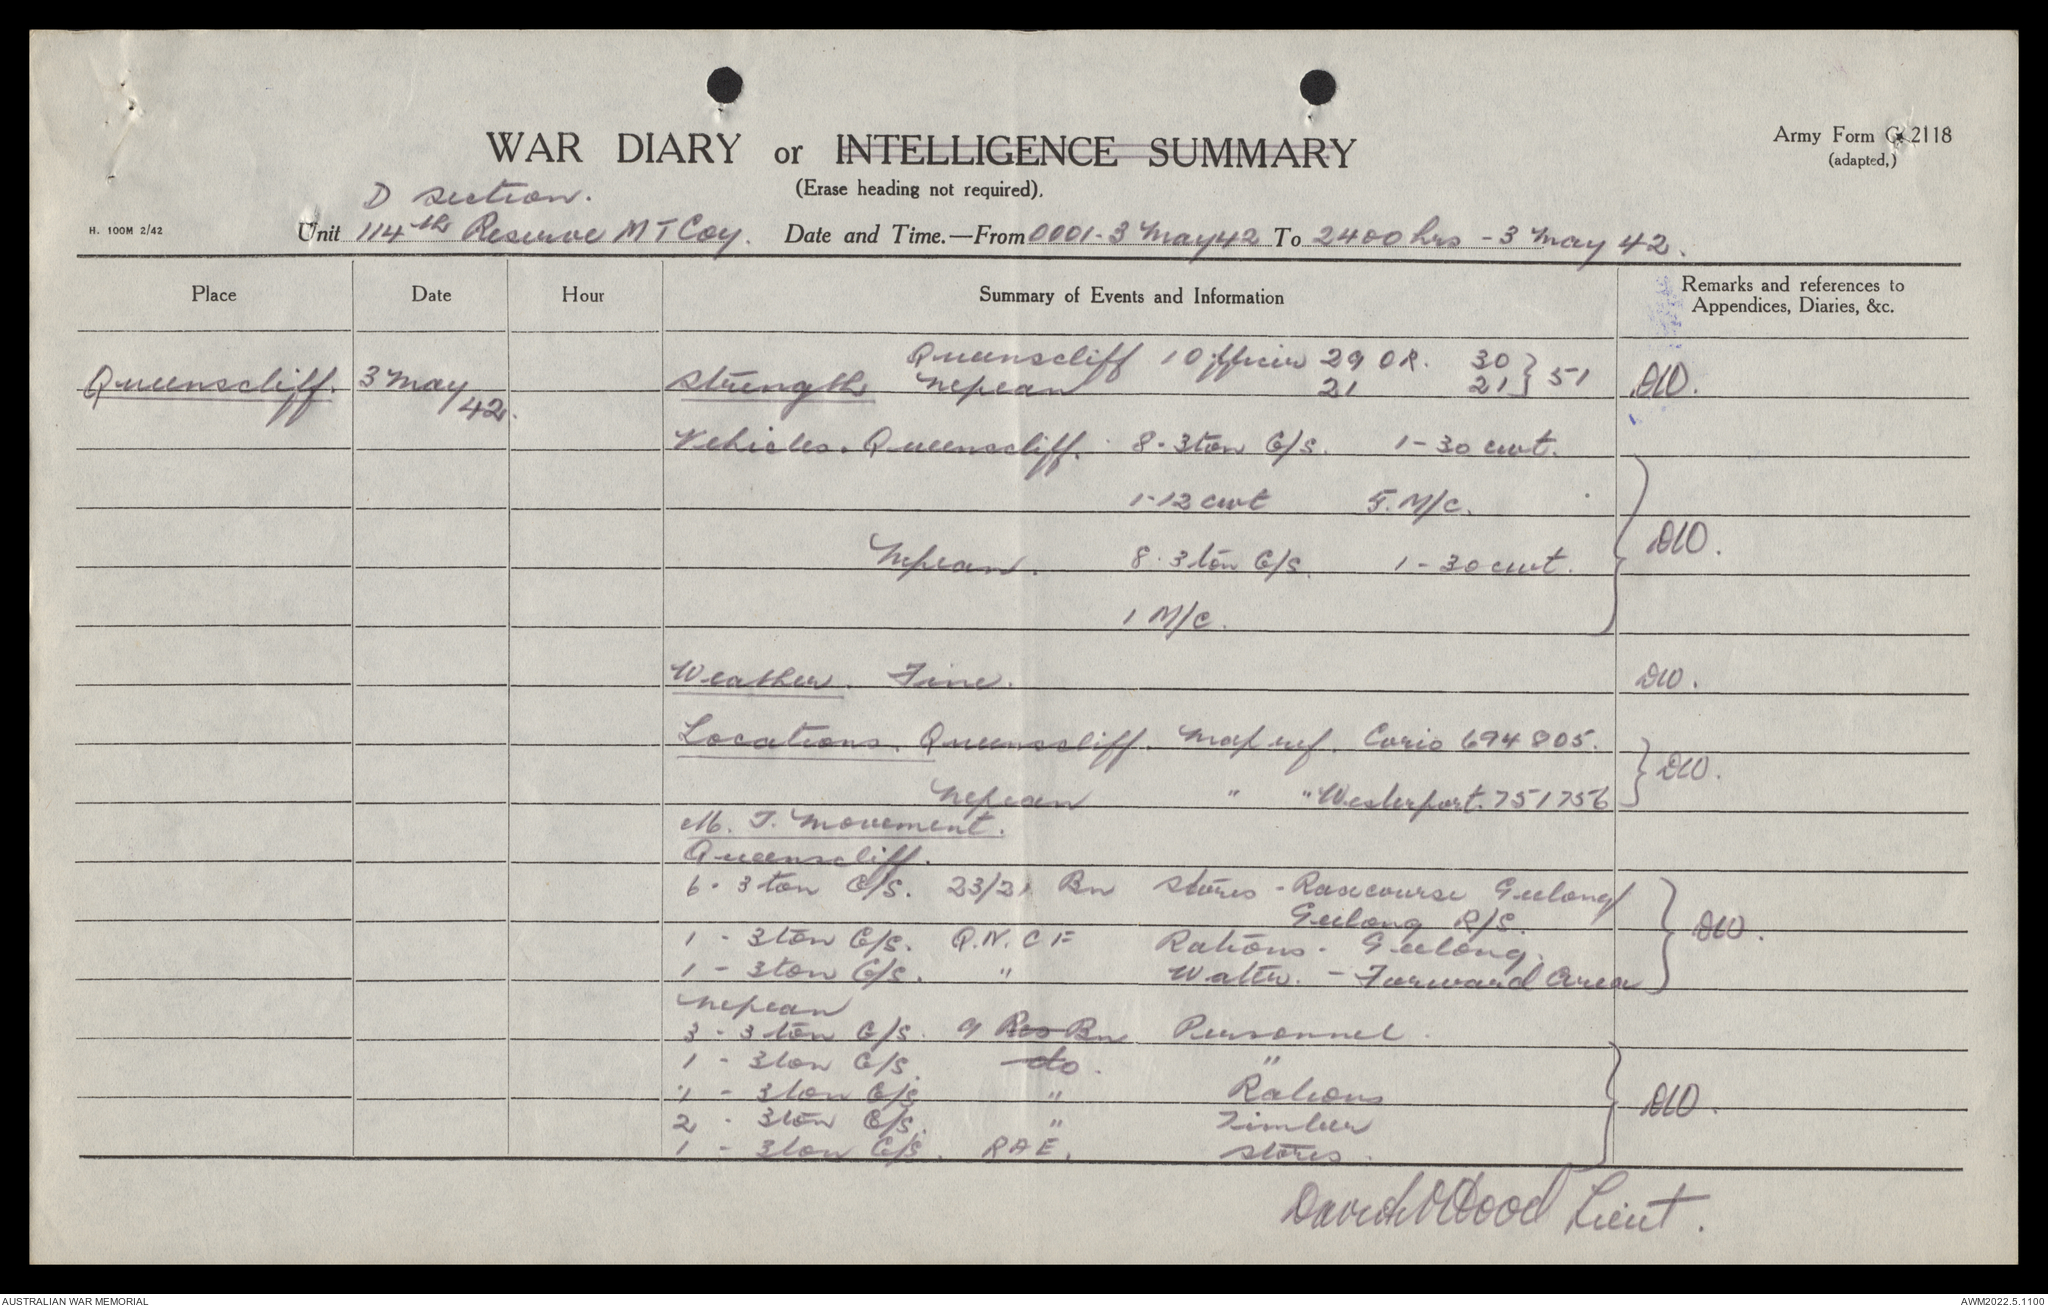 WAR DIARY or INTELLIGENCE SUMMARY
Army Form C. 2118
(adapted,)
(Erase heading not required).
D section.
H. 100M 2/42
Unit 114th Reserve M T Coy. Date and Time.—From 0001-3 May 42 To 2400 hrs - 3 May 42.
Place Date Hour Summary of Events and Information Remarks and references to Appendices, Diaries, &c.
Queenscliff 1 Officer 29 OR. 30 } 51
Queenscliff. 3 May 42. Strength Nepean 21 21 DLO.
Vehicles. Queenscliff. 8-3 ton G/S. 1-30 cwt.
1-12 cwt 5. M/C.
Nepean. 8-3 ton G/S. 1-30 cwt. DLO.
1 M/C.
Weather. Fine. DLO.
Locations. Queenscliff. Map ref. Corio 694805.
Nepean " " Westerport. 751756 DLO.
M. T. Movement.
Queenscliff.
6-3 ton G/S. 23/21 Bn Stores - Racecourse Geelong
Geelong R/S.
1 - 3 ton G/S. Q.N.C F Rations - Geelong. DLO.
1 - 3 ton G/S. " Water. - Forward Area
Nepean
3 - 3 ton G/S. 9 Res Bn Personnel.
1 - 3 ton G/S. do. "
1 - 3 ton G/S " Rations DLO.
2 - 3 ton G/S. " Timber
1 - 3 ton G/S. RAE. Stores.
Lieut.
AUSTRALIAN WAR MEMORIAL
AWM2022.5.1100